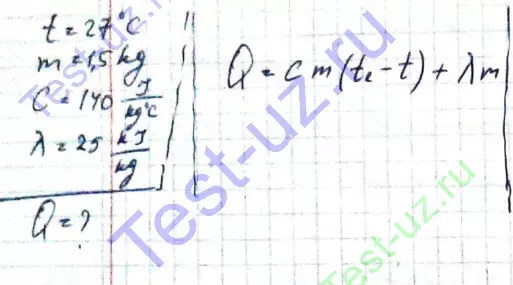 t = 27°C
m = 1,5 kg
C = 140 J/kg°C
λ = 25 kJ/kg
Q = ?
Q = c m (t₂ - t) + λm
Test-uz.ru
Test-uz.ru